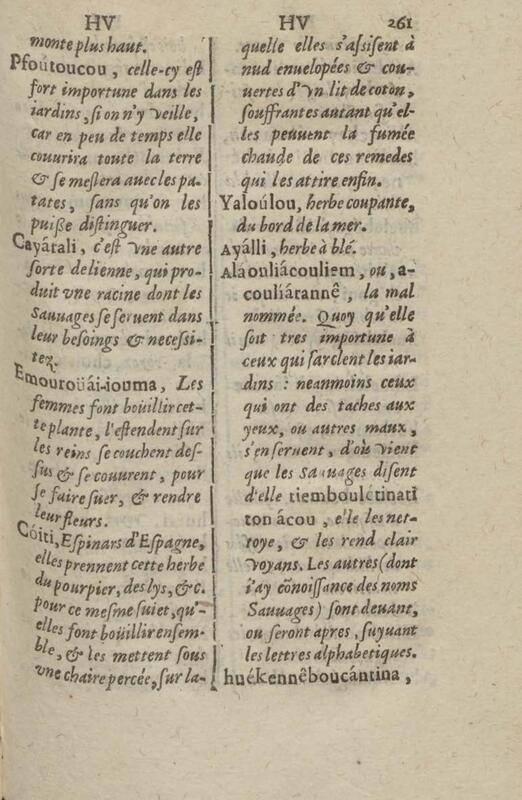 HV HV 261
monte plus haut.
Pfoútoucou, celle-ty est
fort importune dans les
iardins, si on n'y veille,
car en peu de temps elle
couurira toute la terre
& se meslera auec les pa-
tates, sans qu'on les
puisse distinguer.
Cayátali, c'est vne autre
sorte de lienne, qui pro-
duit vne racine dont les
Sauuages se seruent dans
leur besoings & necessi-
tez.
Emouroüái-iouma, Les
femmes font boüillir cet-
te plante, l'estendent sur
les reins se couchent des-
sus & se couurent, pour
se faire suer, & rendre
leur fleurs.
Cóiti, Espinars d'Espagne,
elles prennent cette herbe
du pourpier, des lys, &c.
pour ce mesme suiet, qu'-
elles font boüillir ensem-
ble, & les mettent sous
vne chaire percée, sur la-
quelle elles s'assisent à
nud enuelopées & cou-
uertes d'vn lit de coton,
souffrantes autant qu'el-
les peuuent la fumée
chaude de ces remedes
qui les attire enfin.
Yaloúlou, herbe coupante,
du bord de la mer.
Ayálli, herbe à blé.
Aláouliácouliem, ou, a-
couliárannê, la mal
nommée. Quoy qu'elle
soit tres importune à
ceux qui sarclent les iar-
dins : neanmoins ceux
qui ont des taches aux
yeux, ou autres maux,
s'en seruent, d'où vient
que les Sauuages disent
d'elle tiembouletinati
ton ácou, elle les net-
toye, & les rend clair
voyans. Les autres (dont
i'ay cõnoissance des noms
Sauuages) sont deuant,
ou seront apres, suyuant
les lettres alphabetiques.
huékennêboucántina,